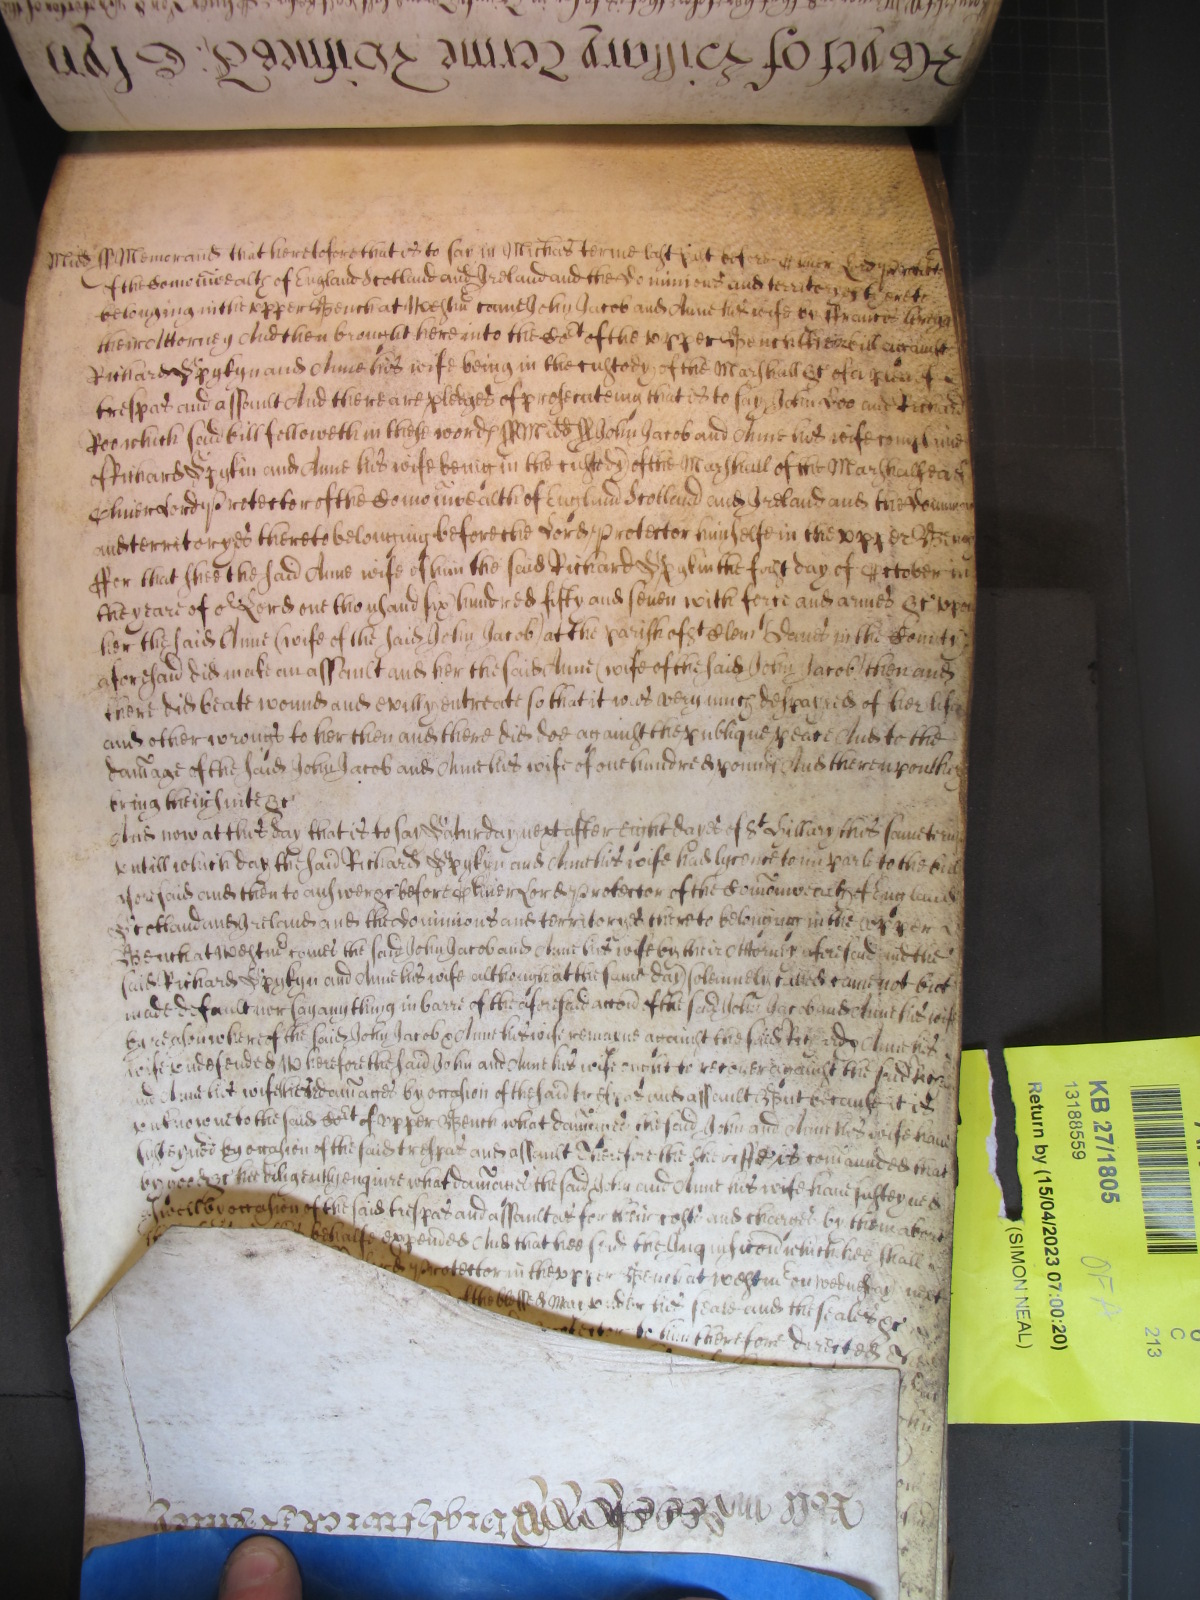 As yet of Hillary Terme Witnes J: Glyn
Midd ss Memorand that heretofore that is to say in Michas terme last past before Oliver Lord Protector
of the Comonwealth of England Scotland and Ireland and the Dominions and territoryes thereto
belonging in the upper Bench at Westm came John Jacob and Anne his wife by Francis
their Attorney And then brought here into the Cot of the upper Bench their bill against
Richard Spykyn and Anne his wife being in the custody of the Marshall &c of a plea of
trespas and assault And there are pledges of prosecuteing that is to say John Doo and Richard
Roo which said bill followeth in these words ss Midd ss John Jacob and Anne his wife complaine
of Richard Spykin and Anne his wife being in the custody of the Marshall of the Marshalsea
Oliver Lord Protector of the Comonwealth of England Scotland and Ireland and the Dominions
and territoryes thereto belonging before the Lord Protector himselfe in the upper Bench
ffor that shee the said Anne wife of him the said Richard Spykin the first day of October in
the yeare of or Lord one thousand six hundred fifty and seven with force and armes &c upon
her the said Anne (wife of the said John Jacob) at the parish of St Clem Danes in the County
aforesaid did make an assault and her the said Anne (wife of the said John Jacob) then and
there did beate wound and evilly entreate so that it was very much despayred of her life
and other wrongs to her then and there did doe against the publique peace And to the
damage of the said John Jacob and Anne his wife of one hundred pounds And thereupon they
bring their suite &c
And now at this day that is to say Saturday next after eight dayes of St Hillary this same terme
untill which day the said Richard Spykyn and Anne his wife had lycence to imparle to the bill
aforesaid and then to answere &c before Oliver Lord Protector of the Comonwealth of England
Scotland and Ireland and the dominions and territoryes thereto belonging in the upper
Bench at Westm comes the said John Jacob and Anne his wife by their Attorney aforesaid and the
said Richard Spykyn and Anne his wife although at the same day solemnely called came not but
made default nor say any thing in barre of the aforesaid accon of the said John Jacob and Anne his wife
by reason whereof the said John Jacob & Anne his wife remayne against the said Richard & Anne his
wife undefended Wherefore the said John and Anne his wife ought to recover against the said Richard
and Anne his wife their damages by occasion of the said trespas and assault But because it is
unknowne to the said Cot of upper Bench what damages the said John and Anne his wife have
susteyned by occasion of the said trespas and assault Therefore the Sheriffe is comanded that
by &c hee diligently enquire what damages the said John and Anne his wife have susteyned
aswell by occasion of the said trespas and assault as for their costs and charges by them about
behalfe expended And that hee send the Inquisicon which hee shall
Protector in the upper Bench at Westm on Wednesday next
of the blessed Mary under his seale and the seales &c
Protector to him therefore directed
KB 27/1805
13188559
Return by (15/04/2023 07:00:20)
(SIMON NEAL)
213